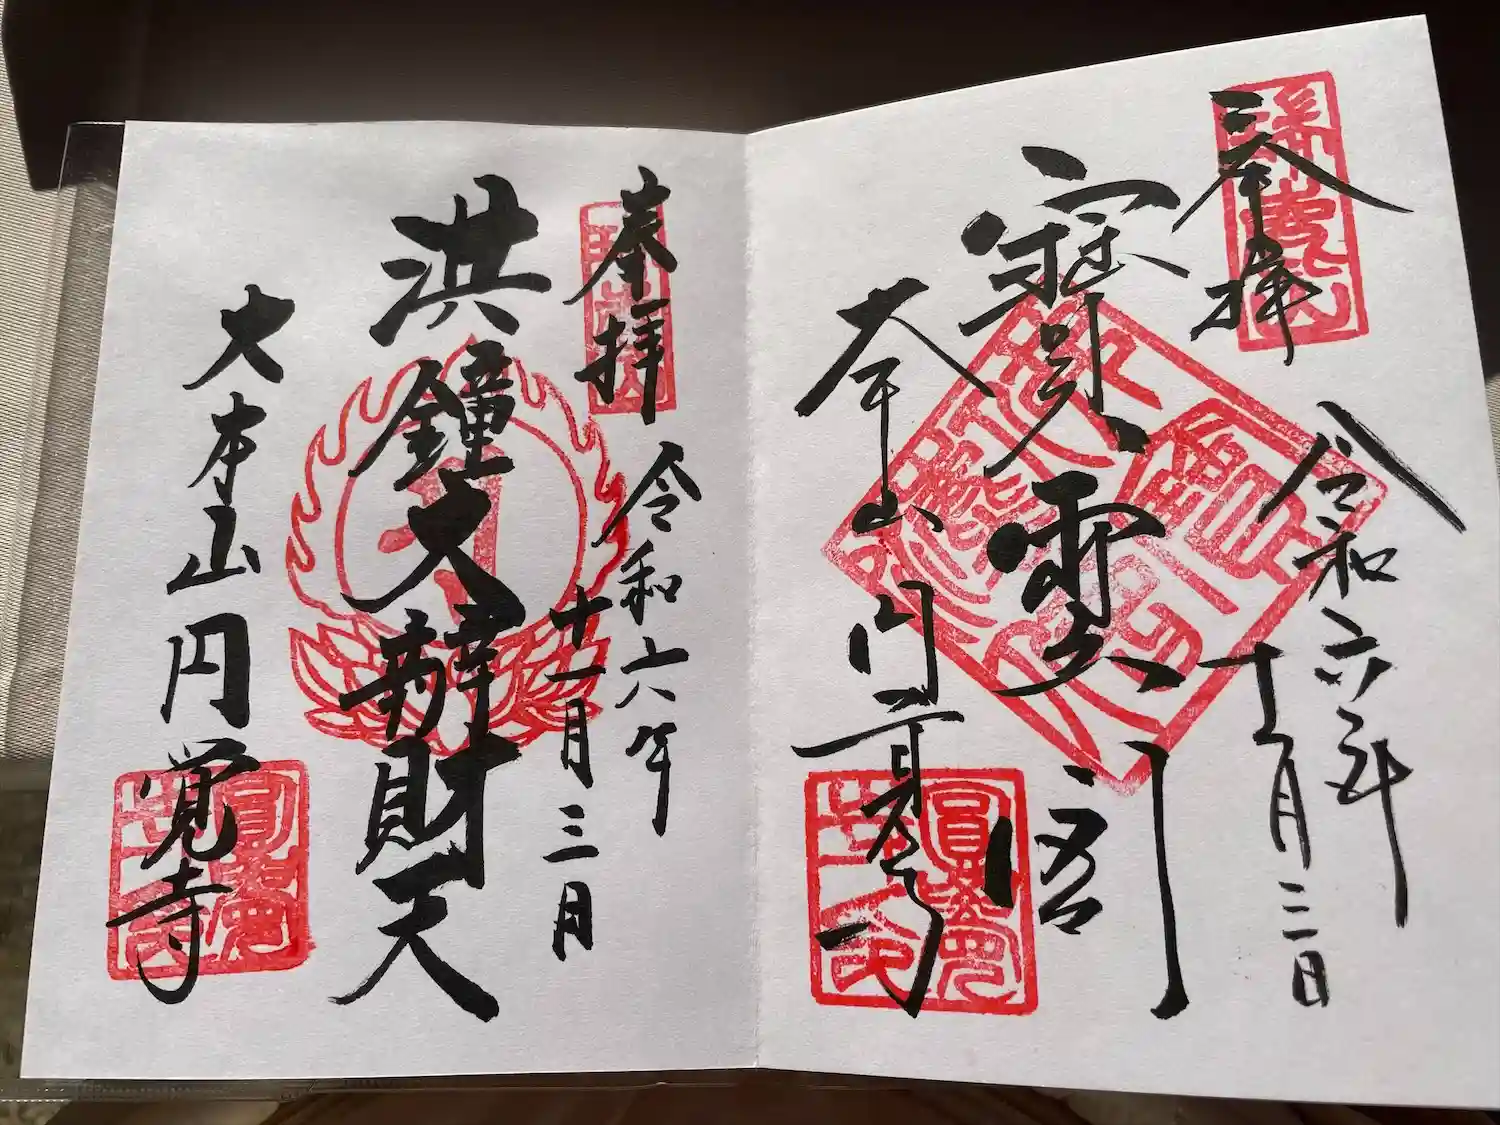 奉拝
令和六年
十一月三日
寶雲閣
大本山円覚寺
奉拝
令和六年
十一月三日
洪鐘大辨財天
大本山円覚寺